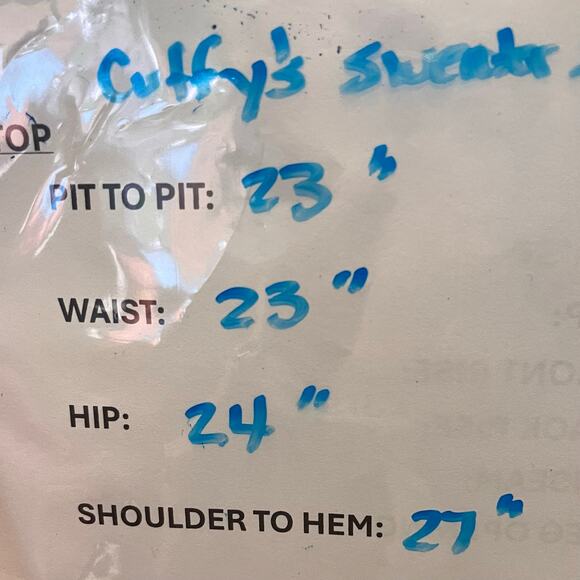 Cuffy's Sweater
TOP
PIT TO PIT: 23"
WAIST: 23"
HIP: 24"
SHOULDER TO HEM: 27"